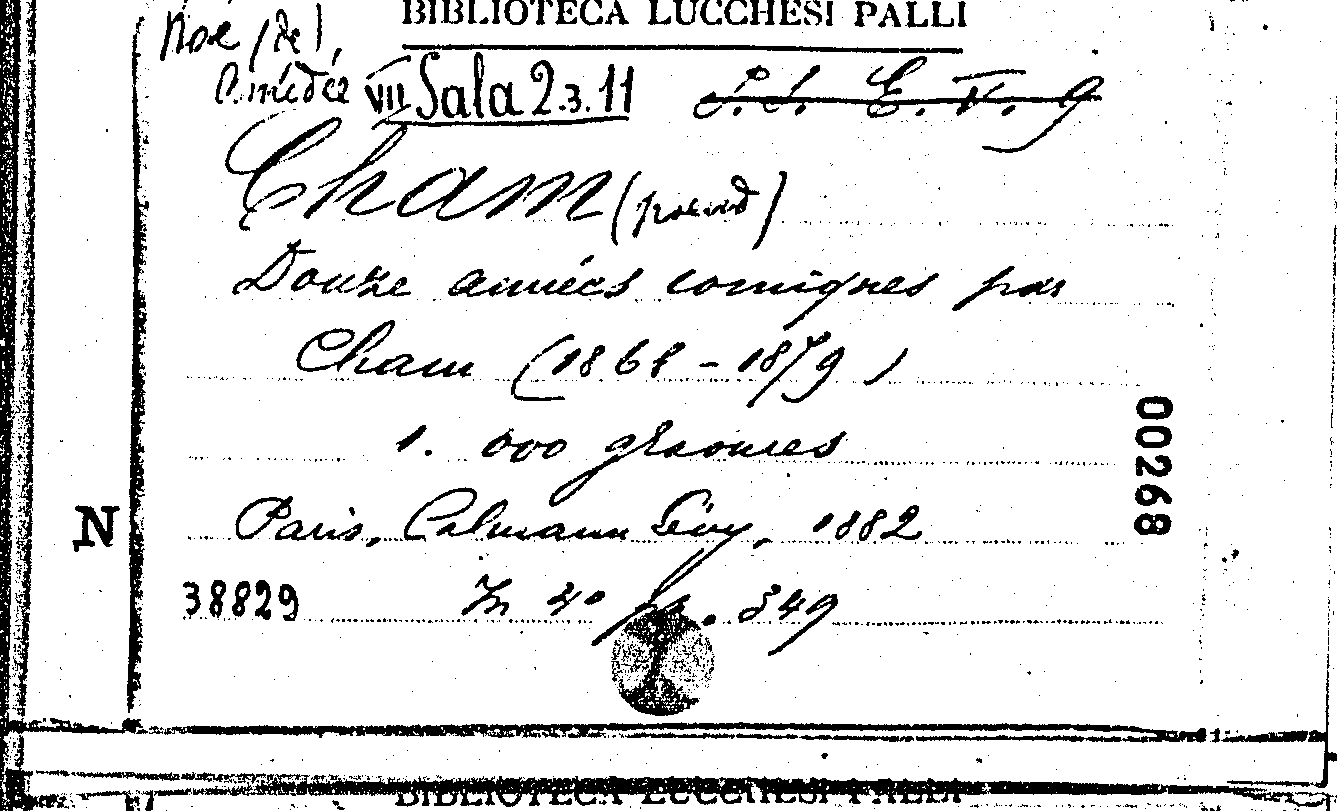 BIBLIOTECA LUCCHESI PALLI
Noè (de),
Amédée VII Sala 2.3.11 S.S. E. V. 9
Cham (pseud)
Douze années comiques par
Cham (1868 - 1879)
1. 000 gravures
Paris, Calmann Lévy, 1882
38829 In 4º pp. 349
N
00268
BIBLIOTECA LUCCHESI PALLI